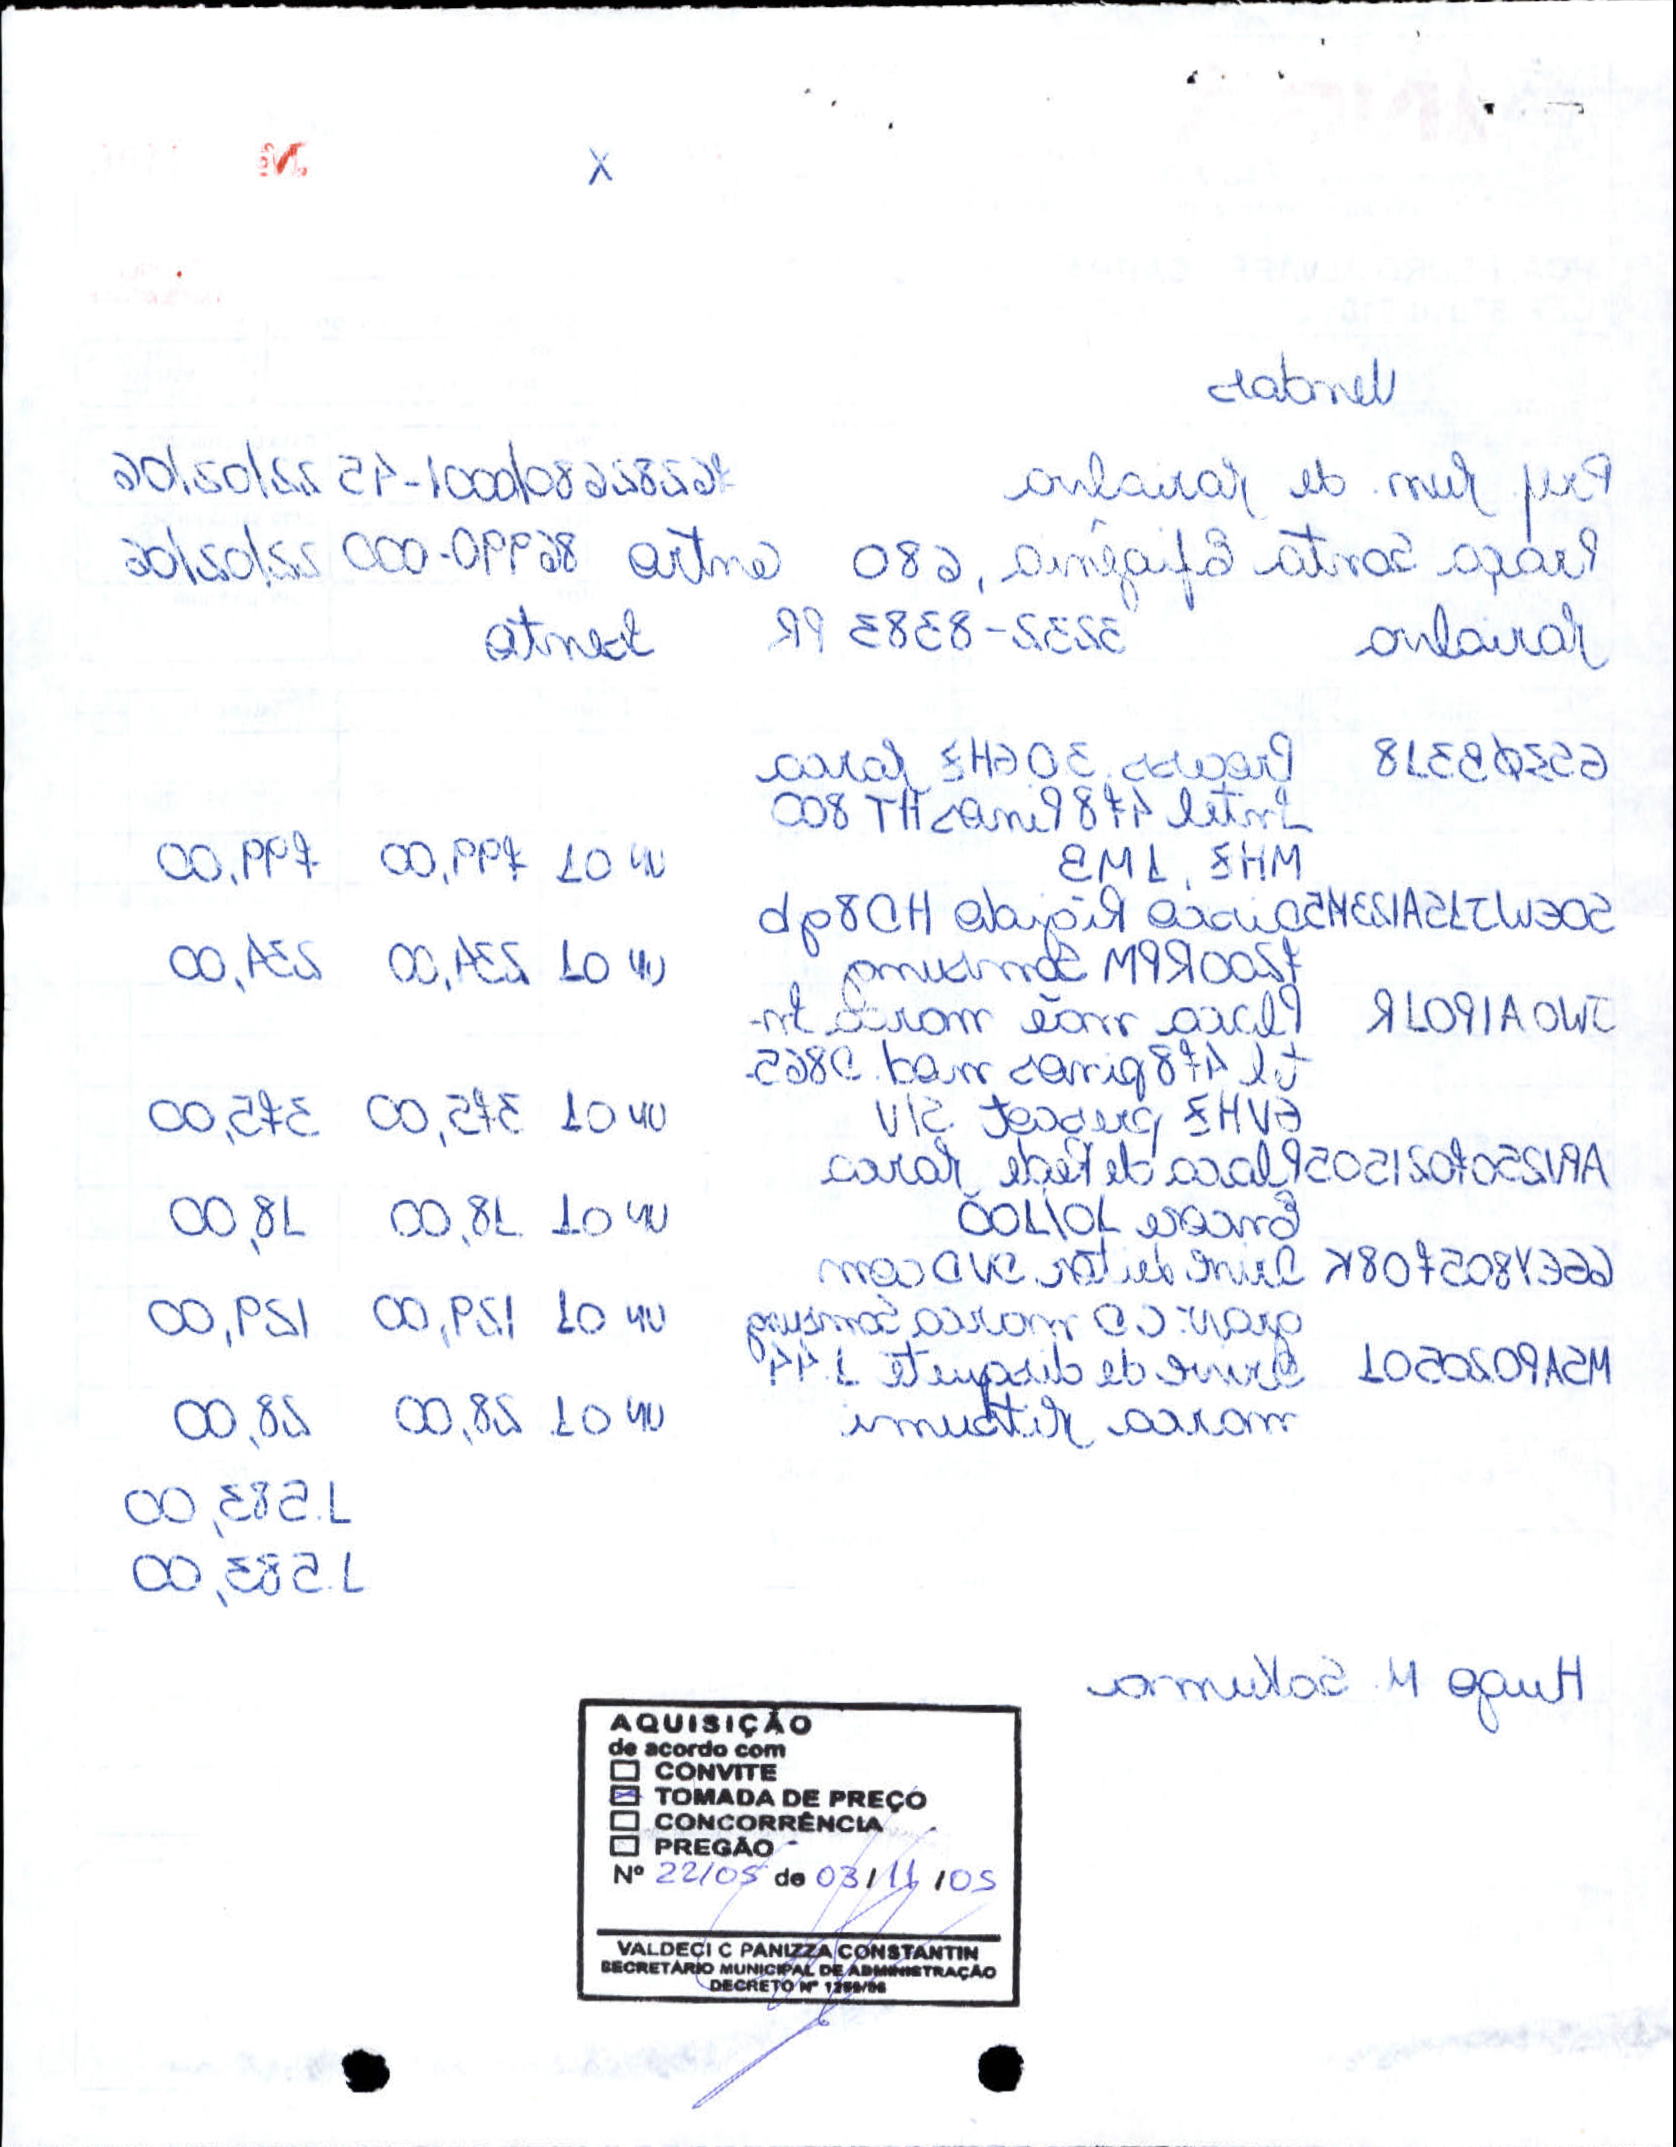 Nº
X
Vendas
Pref. Mun. de Marialva 76282680/0001-45 22/02/06
Praça Santa Efigênia, 680 Centro 86990-000 22/02/06
Marialva 3232-8383 PR Isento
Process. 3.0GHz Marca
Intel 478 Pinos HT 800
MHz, 1MB un 01 799,00 799,00
Disco Rígido HD8gb
7200RPM Samsung un 01 234,00 234,00
JWOA1901R Placa mãe marca In-
tel 478 pinos mod. D865
GVHZ prescot S/V un 01 375,00 375,00
Placa de Rede Marca
Encore 10/100 un 01 18,00 18,00
66EY805708K Drive leitor DVD com
grav. CD marca Samsung un 01 129,00 129,00
M5AP020501 Drive de disquete 1.44
marca Mitsumi un 01 28,00 28,00
1.583,00
1.583,00
Hugo M. Sakuma
AQUISIÇÃO
de acordo com
CONVITE
TOMADA DE PREÇO
CONCORRÊNCIA
PREGÃO
Nº 22/05 de 03/11/05
VALDECI C PANIZZA CONSTANTIN
SECRETÁRIO MUNICIPAL DE ADMINISTRAÇÃO
DECRETO Nº